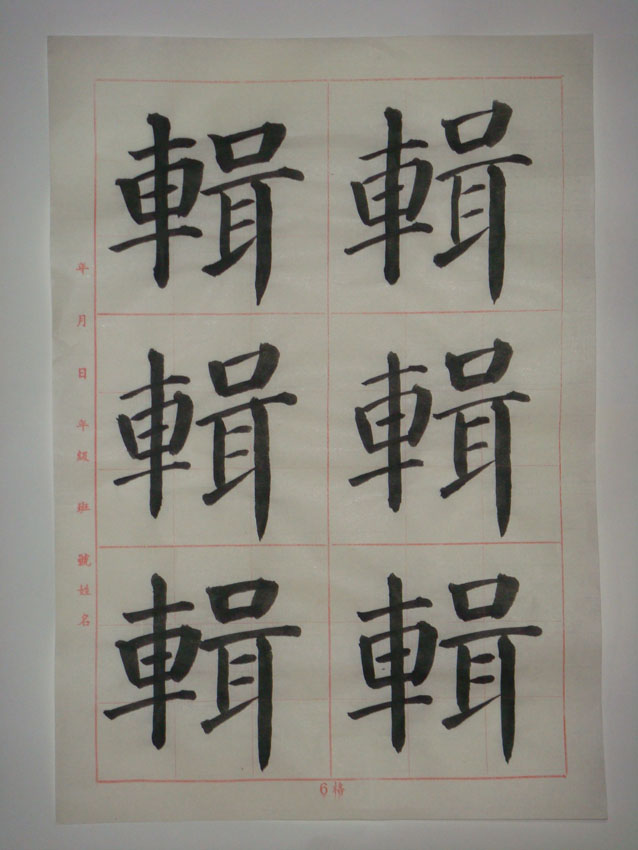 輯輯
輯輯
輯輯
年月日年級班號姓名
6格